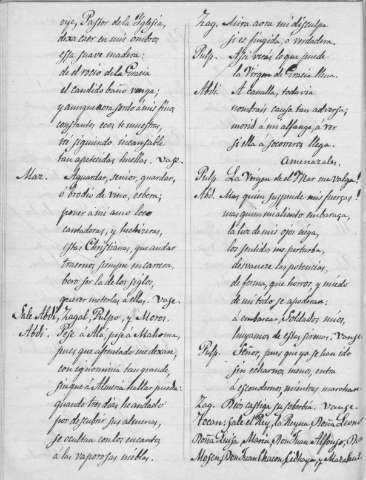 oye, Pastor de la Iglesia,
dexa caer en mis ombros
essa suave madera:
de el rocio de la Gracia
el candido baño venga;
y aunque
constantes
voi siguiendo incansable
tan apetecidas huellas. vase.
Mar. Aguardar, senior, guardar,
ò brodio de vino, espera;
poner à mi amo loco
cantadoras, y hechizeras,
estas Christianas, que andar
traernos siempre en carrera,
pero sor la de los siglos,
querer meterlos à ellas. Vase
Sale Abdi, Zagal, Pulpo, y Moros.
Abdi. Pese à Alà, pese à Mahoma,
pues que afrentado me dexan,
con ignominia tan grande,
sin que à Almeria hallar pueda:
quando tres dias he andado
por descubrir sus almenas,
se oculta con los encantos
à las vaporosas nieblas.
Zag. Mira aora mi disculpa
si es fingida, ò verdadera.
Pulp. Assi veràs lo que puede
la Virgen de Gracia llena.
Abdi. A canalla, todavia
nombrais causa tan adversa;
morid à mi alfange, à ver
si ella à socorreros llega.
Amenazales.
Pulp. La Virgen de el Mar me valga!
Abd. Mas quien suspende mis fuerzas!
mas quien mi aliento embaraza,
la luz de mis ojos ciega,
los sentidos me perturba,
desvanece las potencias,
de forma, que horror, y miedo
de mi todo se apoderan:
à embarcar, Soldados mios,
huyamos de estas sirenas. Vanse
Pulp. Señor, pues que ya se han ido
sin echarnos menos, entra
à escondernos mientras marchan
Zag. Dios castiga su soberbia. vanse
Tocan: Sale el Rey, la Reyna Doña Leonor
Doña Luisa, Maria, Don Juan Alfonso, Don
Mosen, Don Juan Chacon,